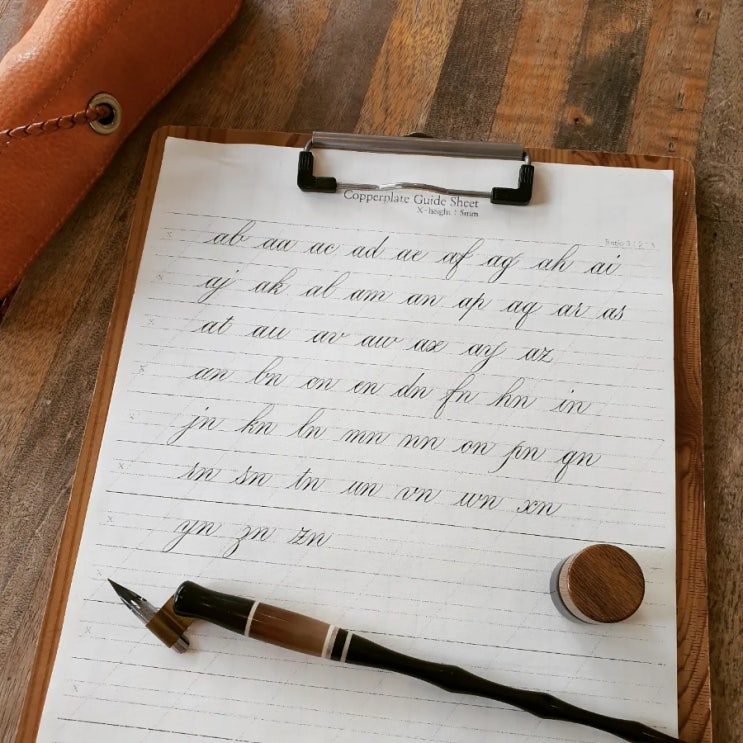 Copperplate Guide Sheet
X-height : 5mm
Ratio 3 : 2 : 3
ab aa ac ad ae af ag ah ai
aj ak al am an ap aq ar as
at au av aw ax ay az
an bn on en dn fn hn in
jn kn ln mn nn on pn qn
rn sn tn un vn wn xn
yn zn zn
x
x
x
x
x
x
x
x
x